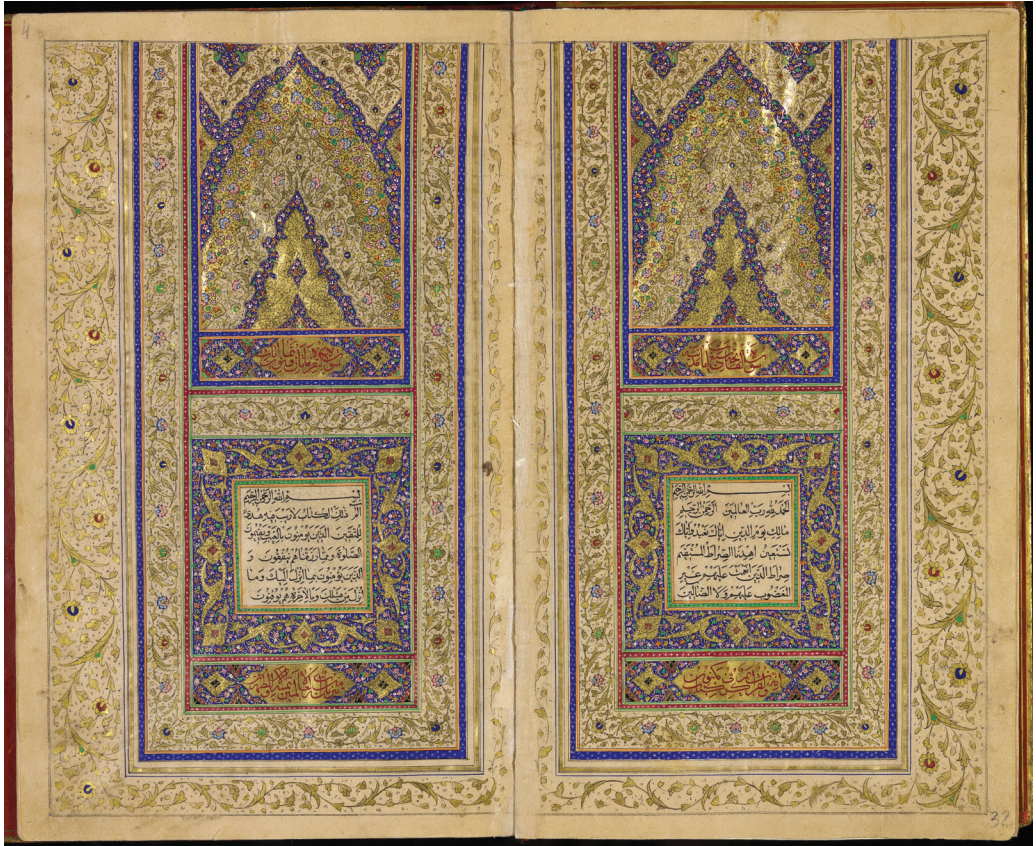 بسم الله الرحمن الرحيم
الحمد لله رب العالمين الرحمن الرحيم
مالك يوم الدين اياك نعبد واياك
نستعين اهدنا الصراط المستقيم
صراط الذين انعمت عليهم غير
المغضوب عليهم ولا الضالين
بسم الله الرحمن الرحيم
الم ذلك الكتاب لا ريب فيه هدى
للمتقين الذين يؤمنون بالغيب ويقيمون
الصلوة ومما رزقناهم ينفقون و
الذين يؤمنون بما انزل اليك وما
انزل من قبلك وبالآخرة هم يوقنون
32